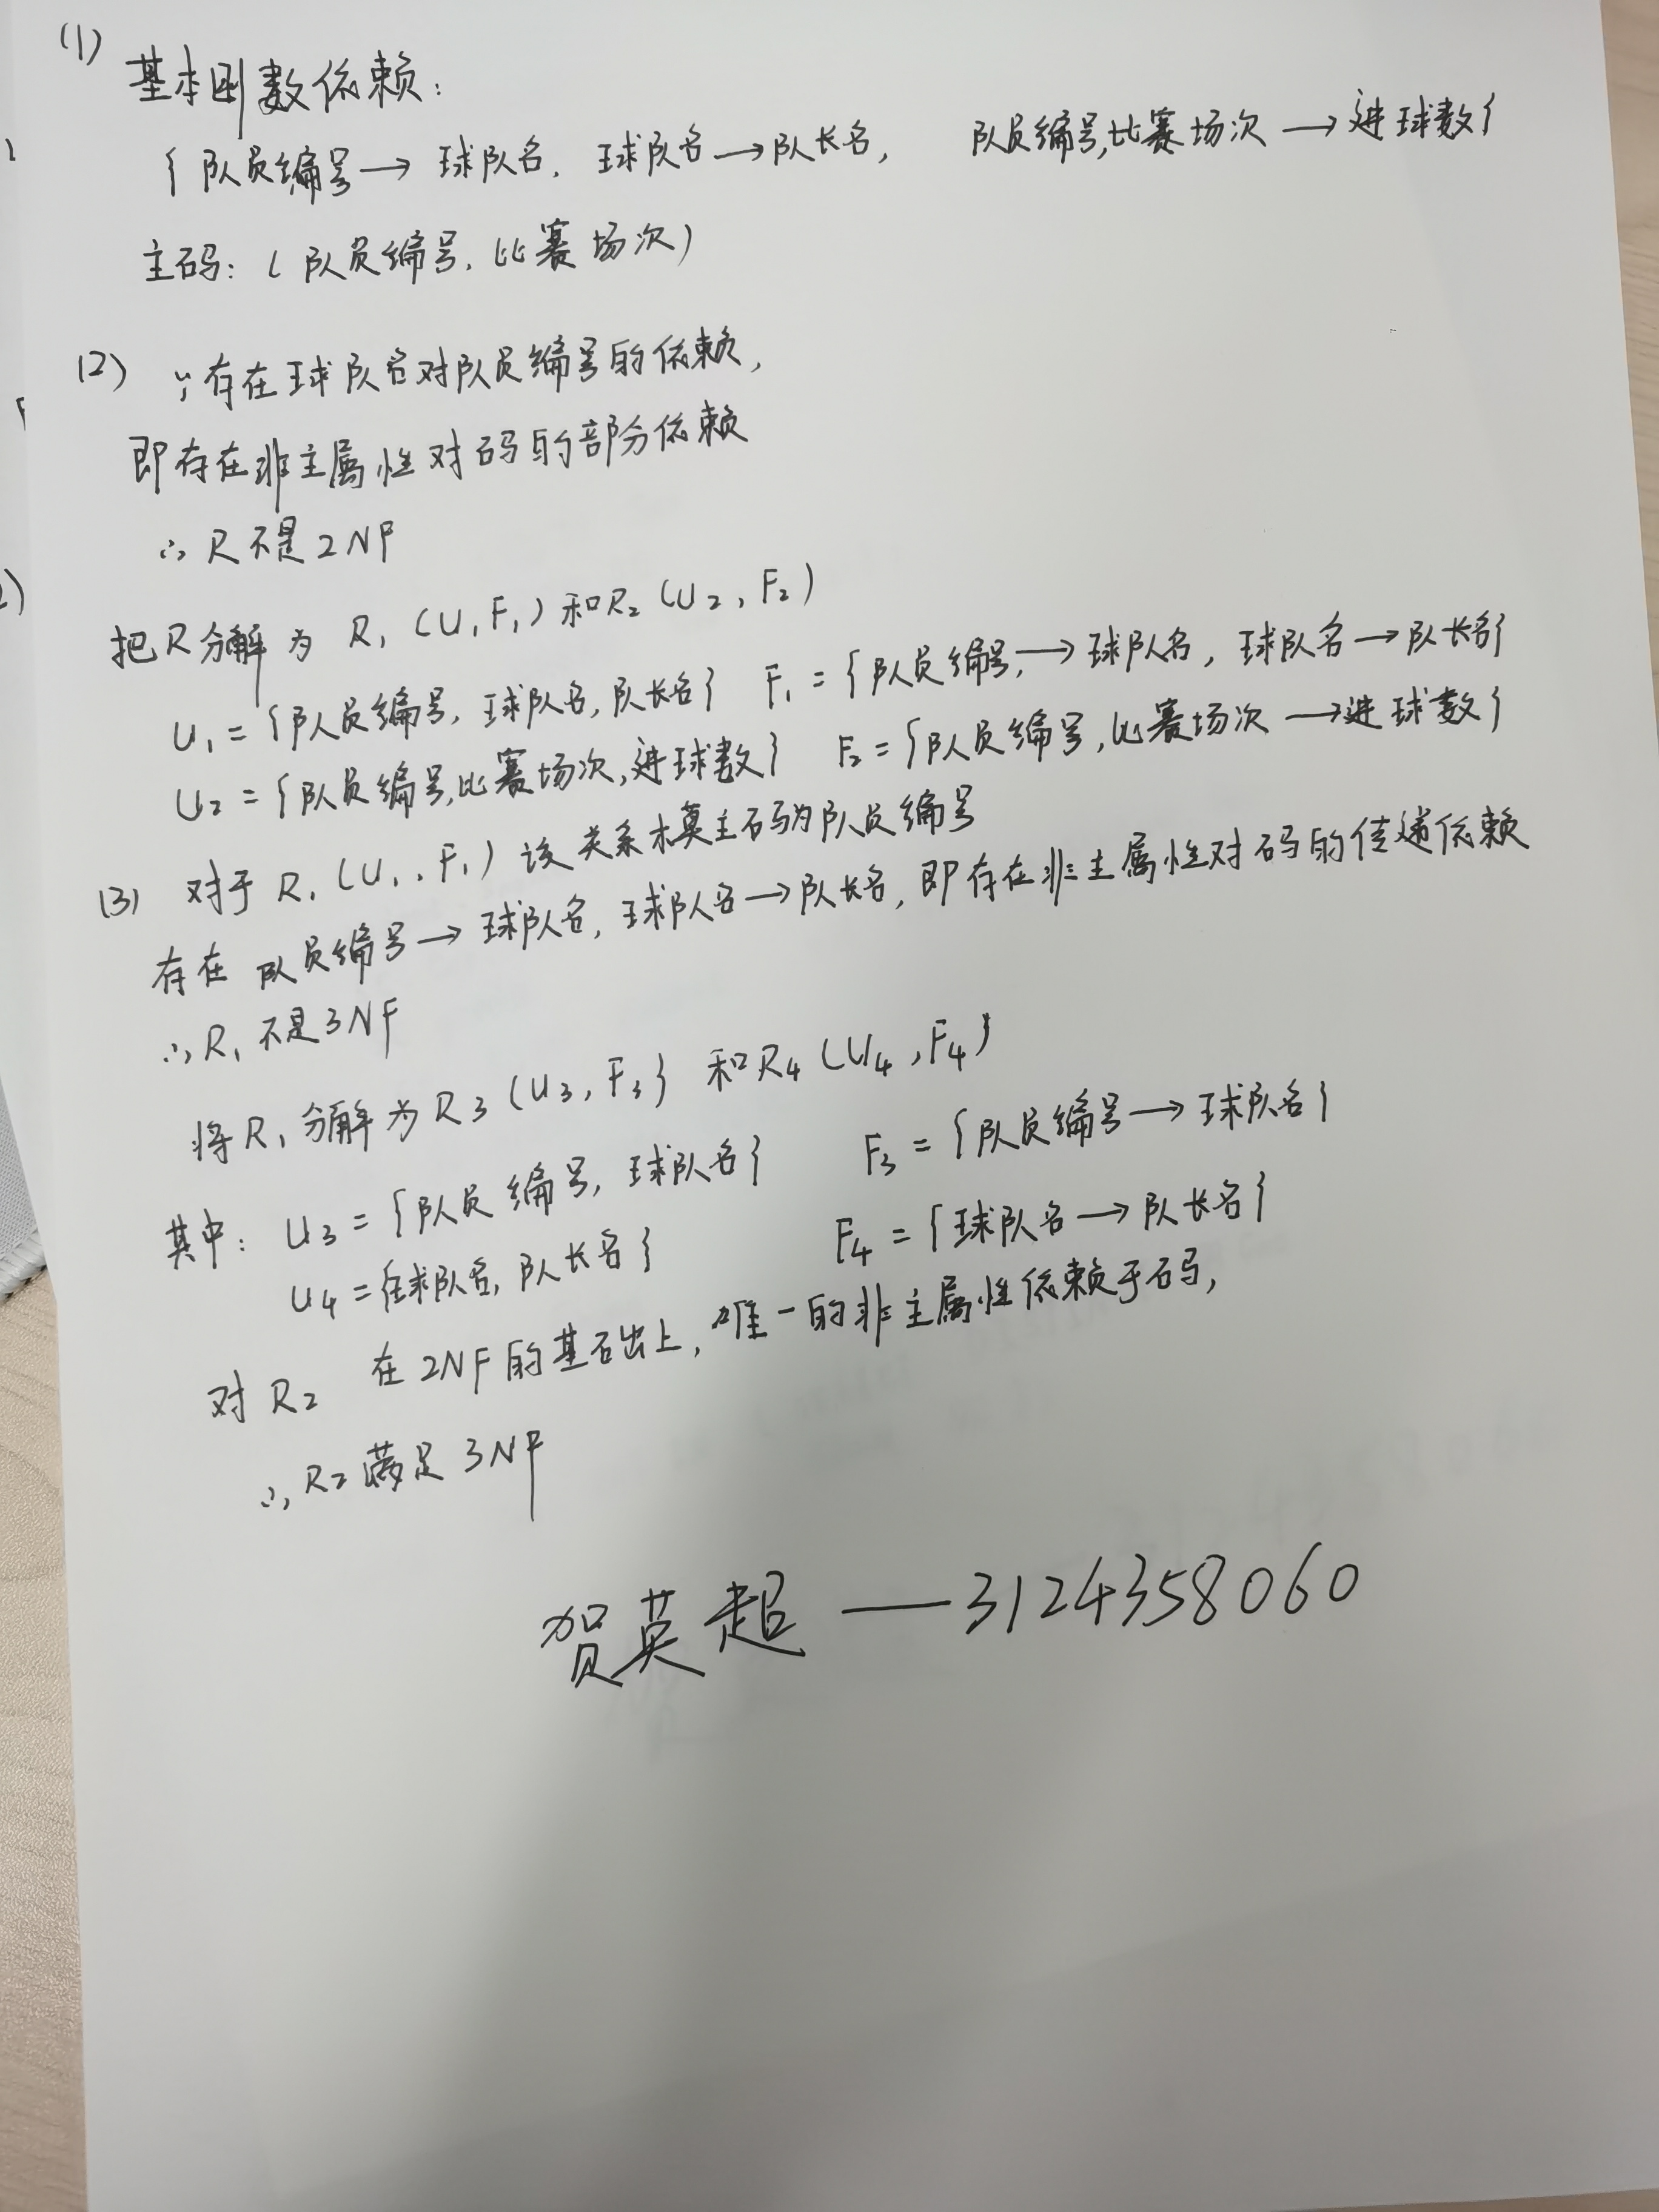 (1)
基本函数依赖:
{队员编号→球队名, 球队名→队长名, 队员编号,比赛场次→进球数}
主码:(队员编号, 比赛场次)
(2) ∵存在球队名对队员编号的依赖,
即存在非主属性对码的部分依赖
∴R不是2NF
把R分解为 R₁(U₁F₁)和R₂(U₂,F₂)
U₁={队员编号, 球队名,队长名} F₁={队员编号,→球队名, 球队名→队长名}
U₂={队员编号,比赛场次,进球数} F₂={队员编号,比赛场次→进球数}
(3) 对于R₁(U₁,F₁)该关系模主码为队员编号
存在 队员编号→球队名, 球队名→队长名, 即存在非主属性对码的传递依赖
∴R₁不是3NF
将R₁分解为R₃(U₃,F₃}和R₄(U₄,F₄)
其中: U₃={队员编号, 球队名} F₃={队员编号→球队名}
U₄={球队名, 队长名} F₄={球队名→队长名}
对R₂ 在2NF的基础上, 唯一的非主属性依赖于码,
∴R₂满足3NF
贺英超—3124358060